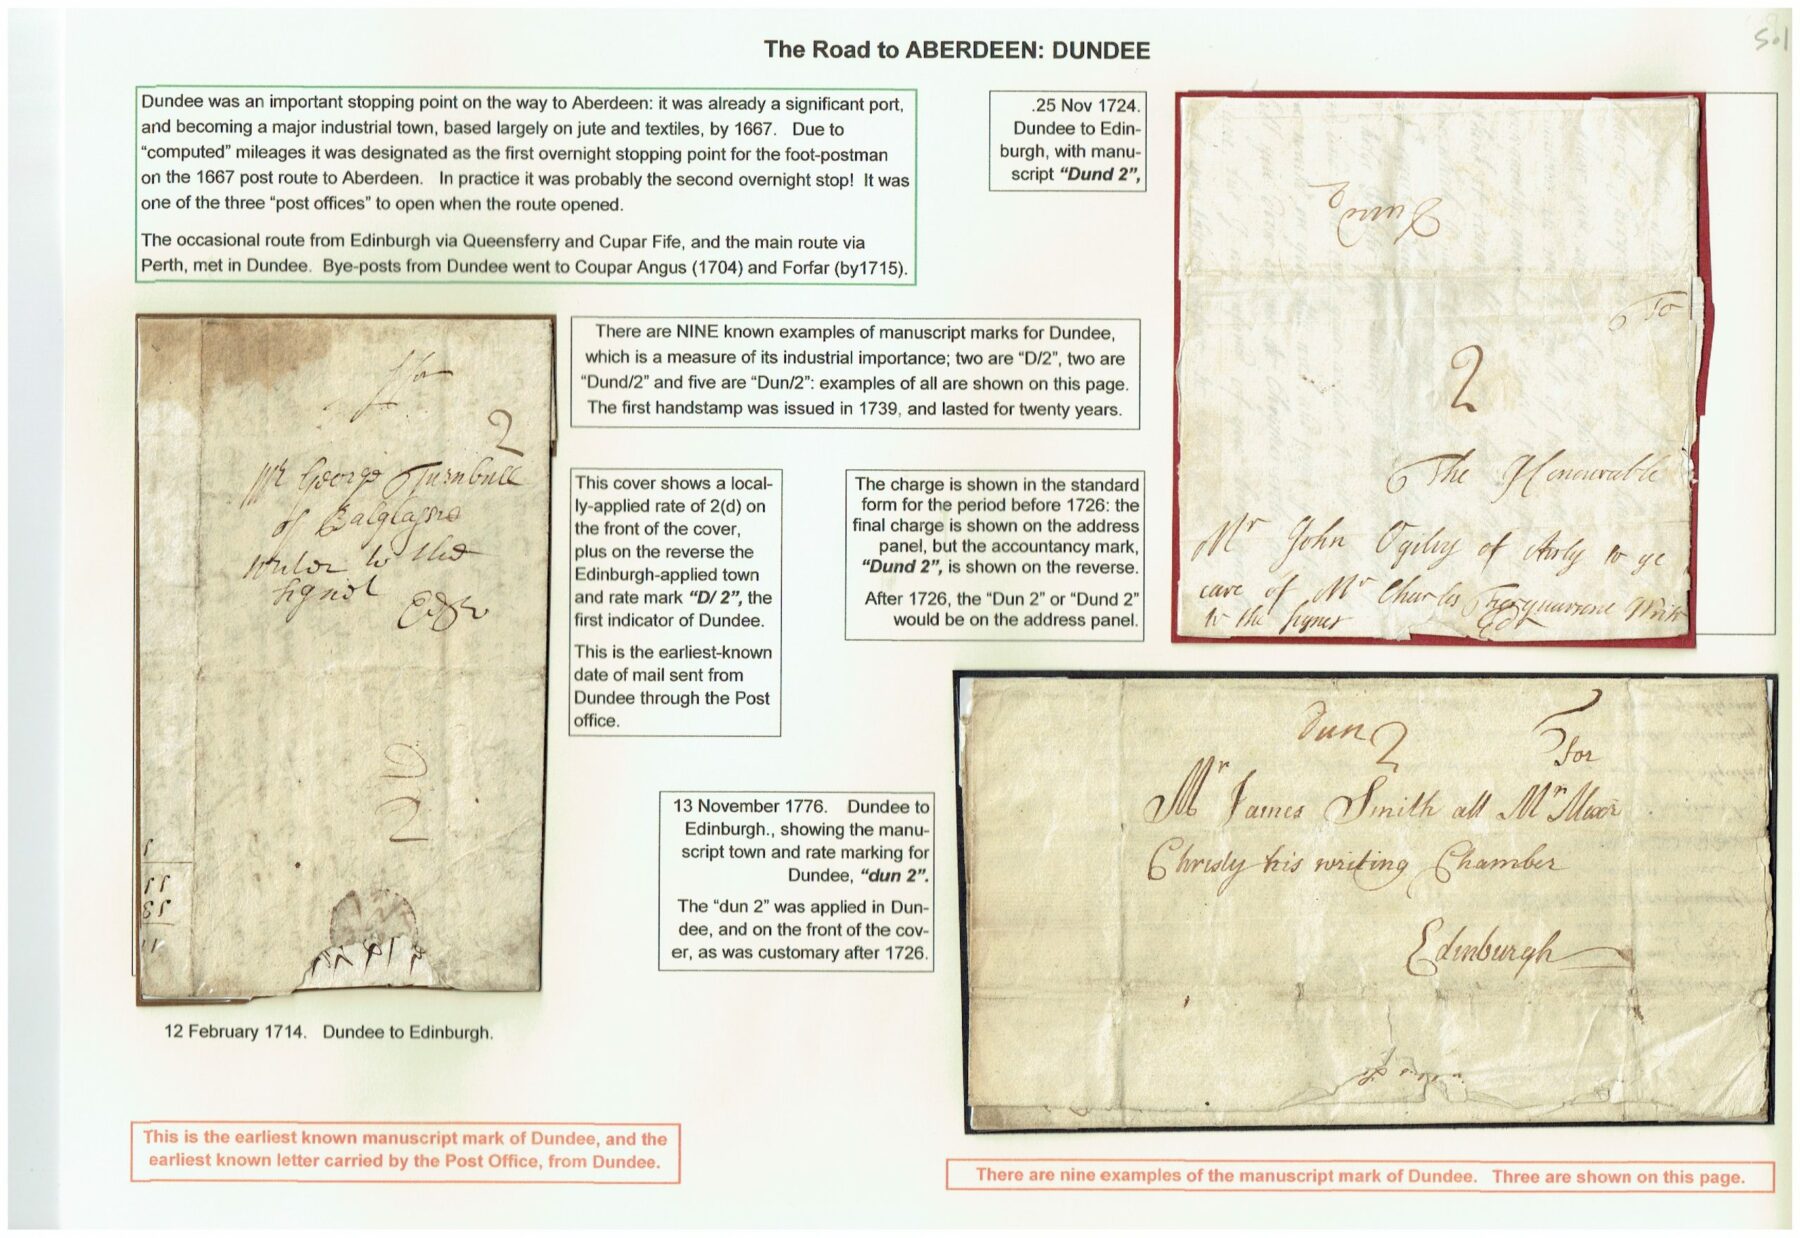 5.1
The Road to ABERDEEN: DUNDEE
Dundee was an important stopping point on the way to Aberdeen: it was already a significant port,
and becoming a major industrial town, based largely on jute and textiles, by 1667. Due to
“computed” mileages it was designated as the first overnight stopping point for the foot-postman
on the 1667 post route to Aberdeen. In practice it was probably the second overnight stop! It was
one of the three “post offices” to open when the route opened.
The occasional route from Edinburgh via Queensferry and Cupar Fife, and the main route via
Perth, met in Dundee. Bye-posts from Dundee went to Coupar Angus (1704) and Forfar (by1715).
.25 Nov 1724.
Dundee to Edin-
burgh, with manu-
script “Dund 2”,
Dun
2
To
2
The Honourable
Mr John Ogilvy of Airly to ye
care of Mr Charles Farquarsone Writr
to the Signet
Edr
There are NINE known examples of manuscript marks for Dundee,
which is a measure of its industrial importance; two are “D/2”, two are
“Dund/2” and five are “Dun/2”: examples of all are shown on this page.
The first handstamp was issued in 1739, and lasted for twenty years.
For
2
Mr George Turnbull
of Balglassie
writer to the
Signet
Edr
D
2
This cover shows a local-
ly-applied rate of 2(d) on
the front of the cover,
plus on the reverse the
Edinburgh-applied town
and rate mark “D/ 2”, the
first indicator of Dundee.
This is the earliest-known
date of mail sent from
Dundee through the Post
office.
The charge is shown in the standard
form for the period before 1726: the
final charge is shown on the address
panel, but the accountancy mark,
“Dund 2”, is shown on the reverse.
After 1726, the “Dun 2” or “Dund 2”
would be on the address panel.
13 November 1776. Dundee to
Edinburgh., showing the manu-
script town and rate marking for
Dundee, “dun 2”.
The “dun 2” was applied in Dun-
dee, and on the front of the cov-
er, as was customary after 1726.
dun 2
For
Mr James Smith att Mr
Chrisly his writing Chamber
Edinburgh
12 February 1714. Dundee to Edinburgh.
This is the earliest known manuscript mark of Dundee, and the
earliest known letter carried by the Post Office, from Dundee.
There are nine examples of the manuscript mark of Dundee. Three are shown on this page.